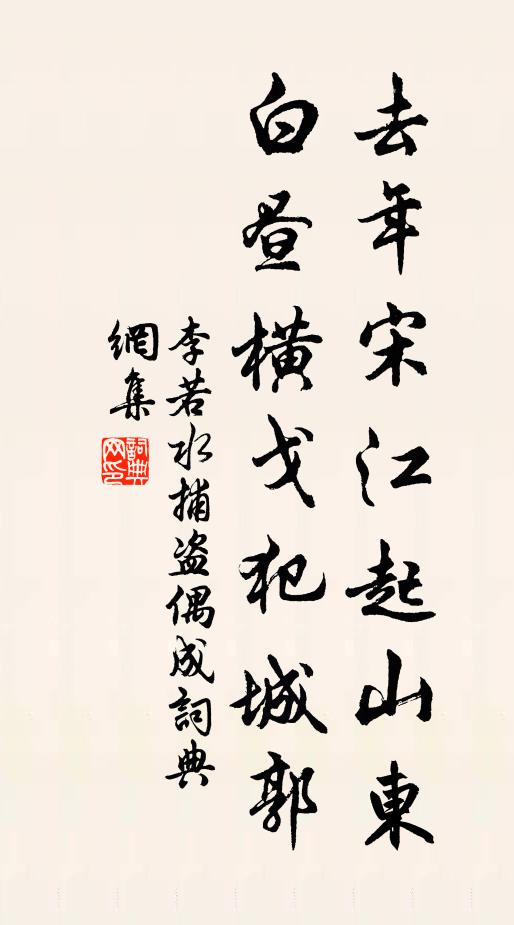 去年宋江起山東
白昼橫戈犯城郭
李若水捕盜偶成詞典
網集
詞典網印